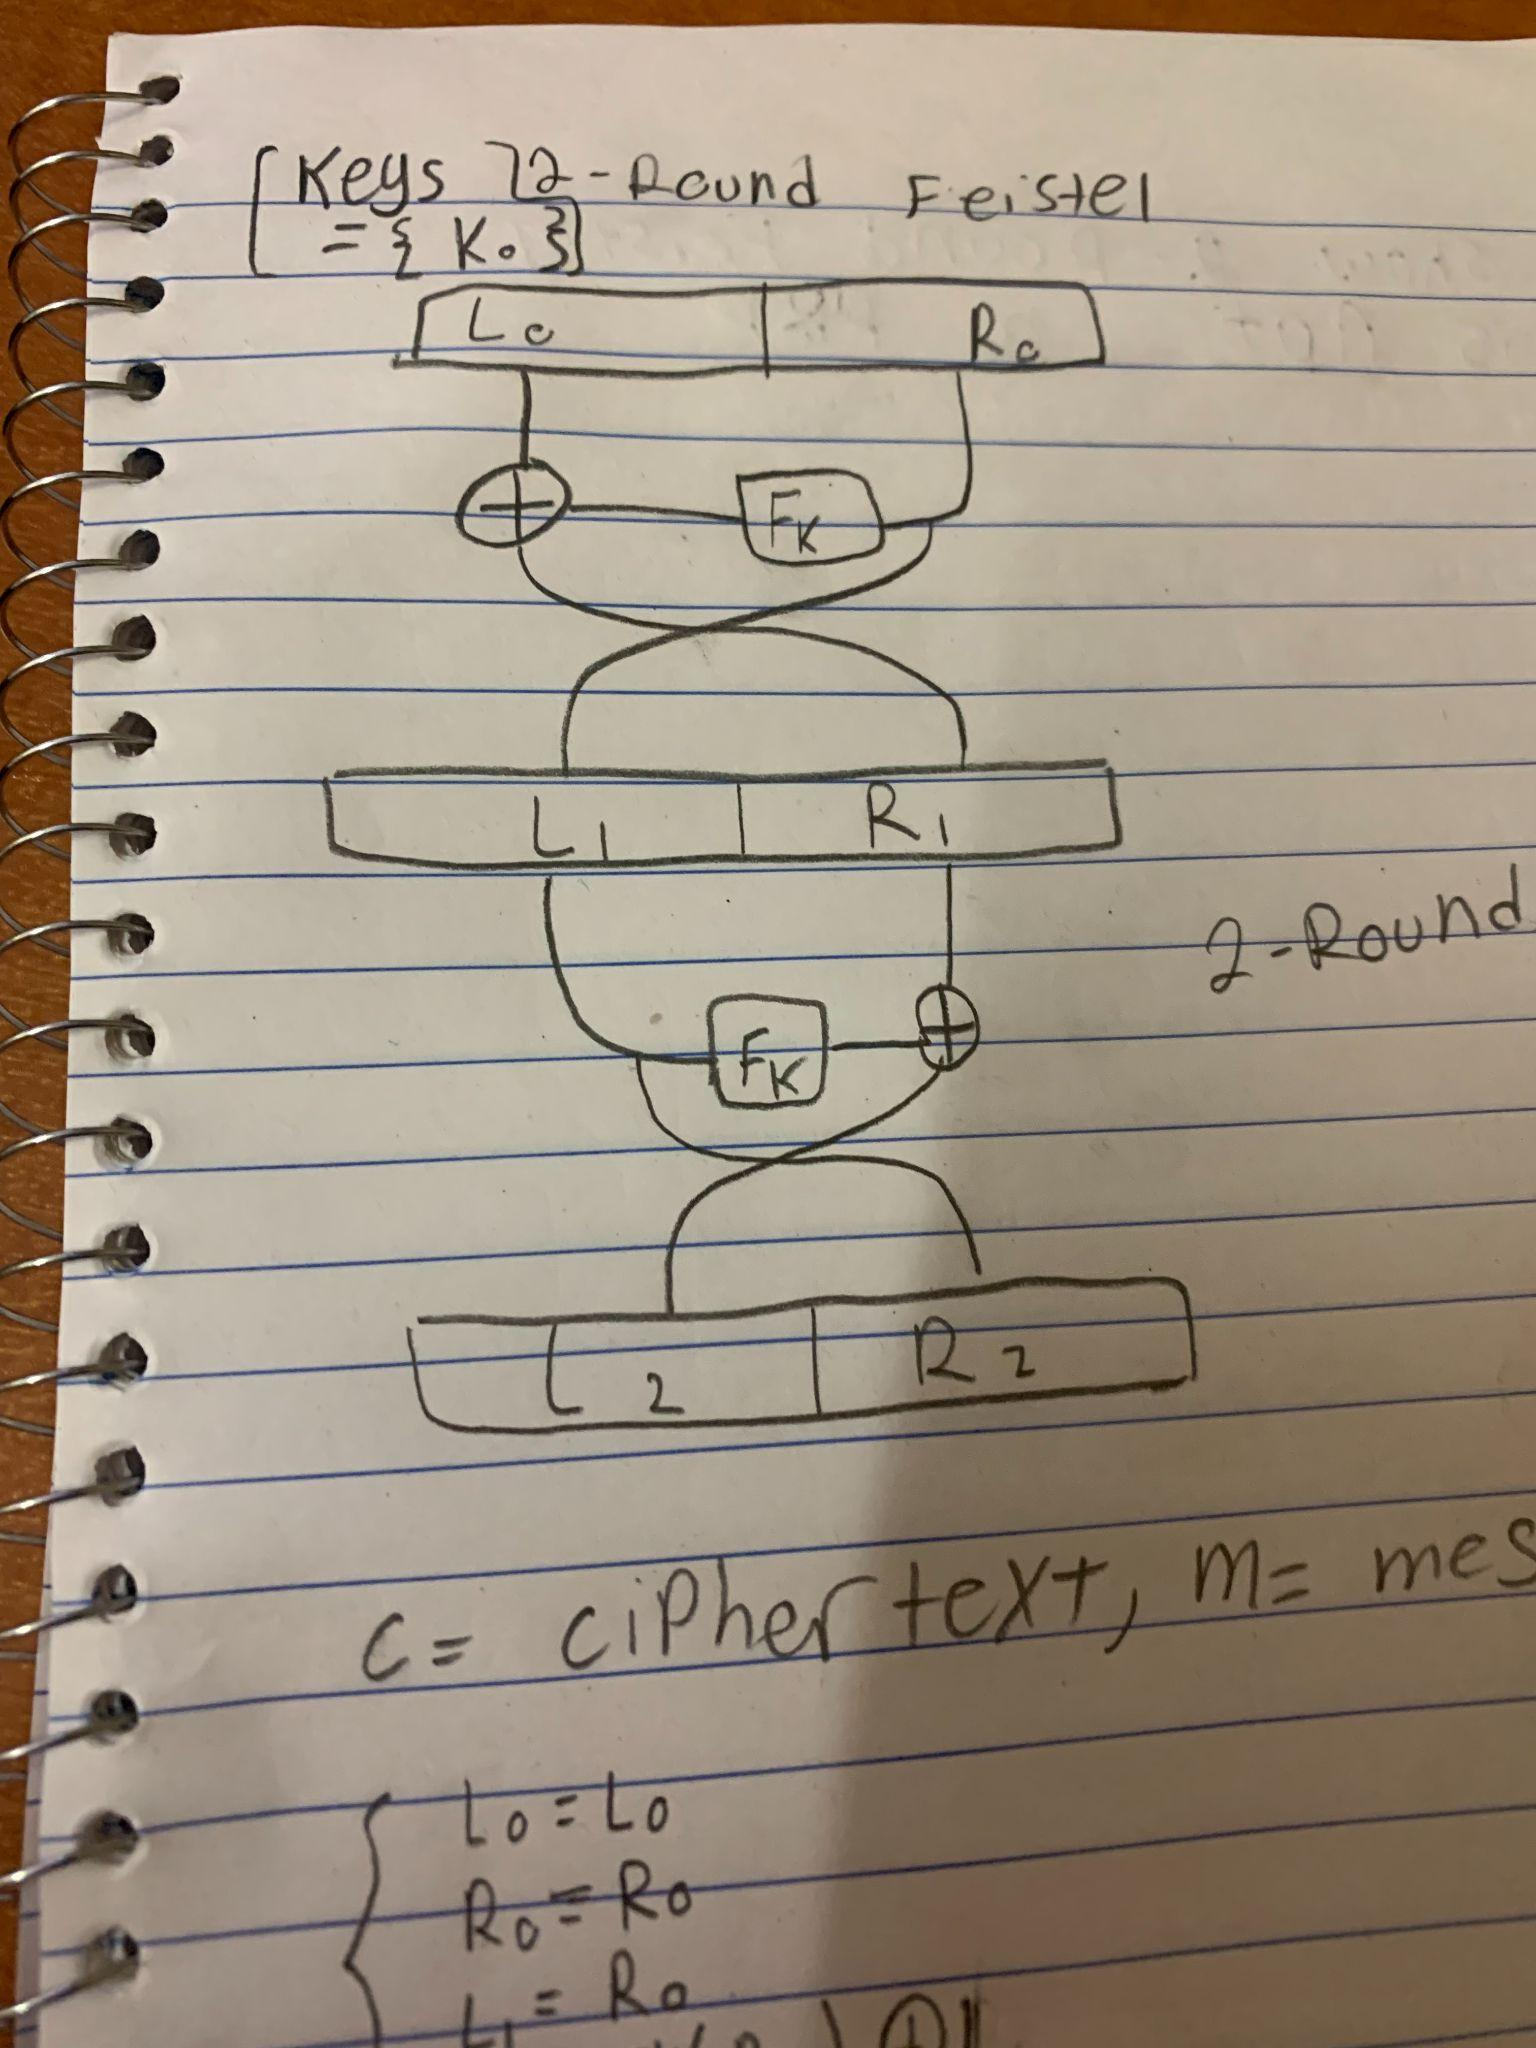 [Keys ] 2-Round Feistel
= { K0 }
L0 R0
⊕ FK
L1 R1
2-Round
FK ⊕
L2 R2
C = Ciphertext, m = mes
L0 = L0
R0 = R0
L1 = R0